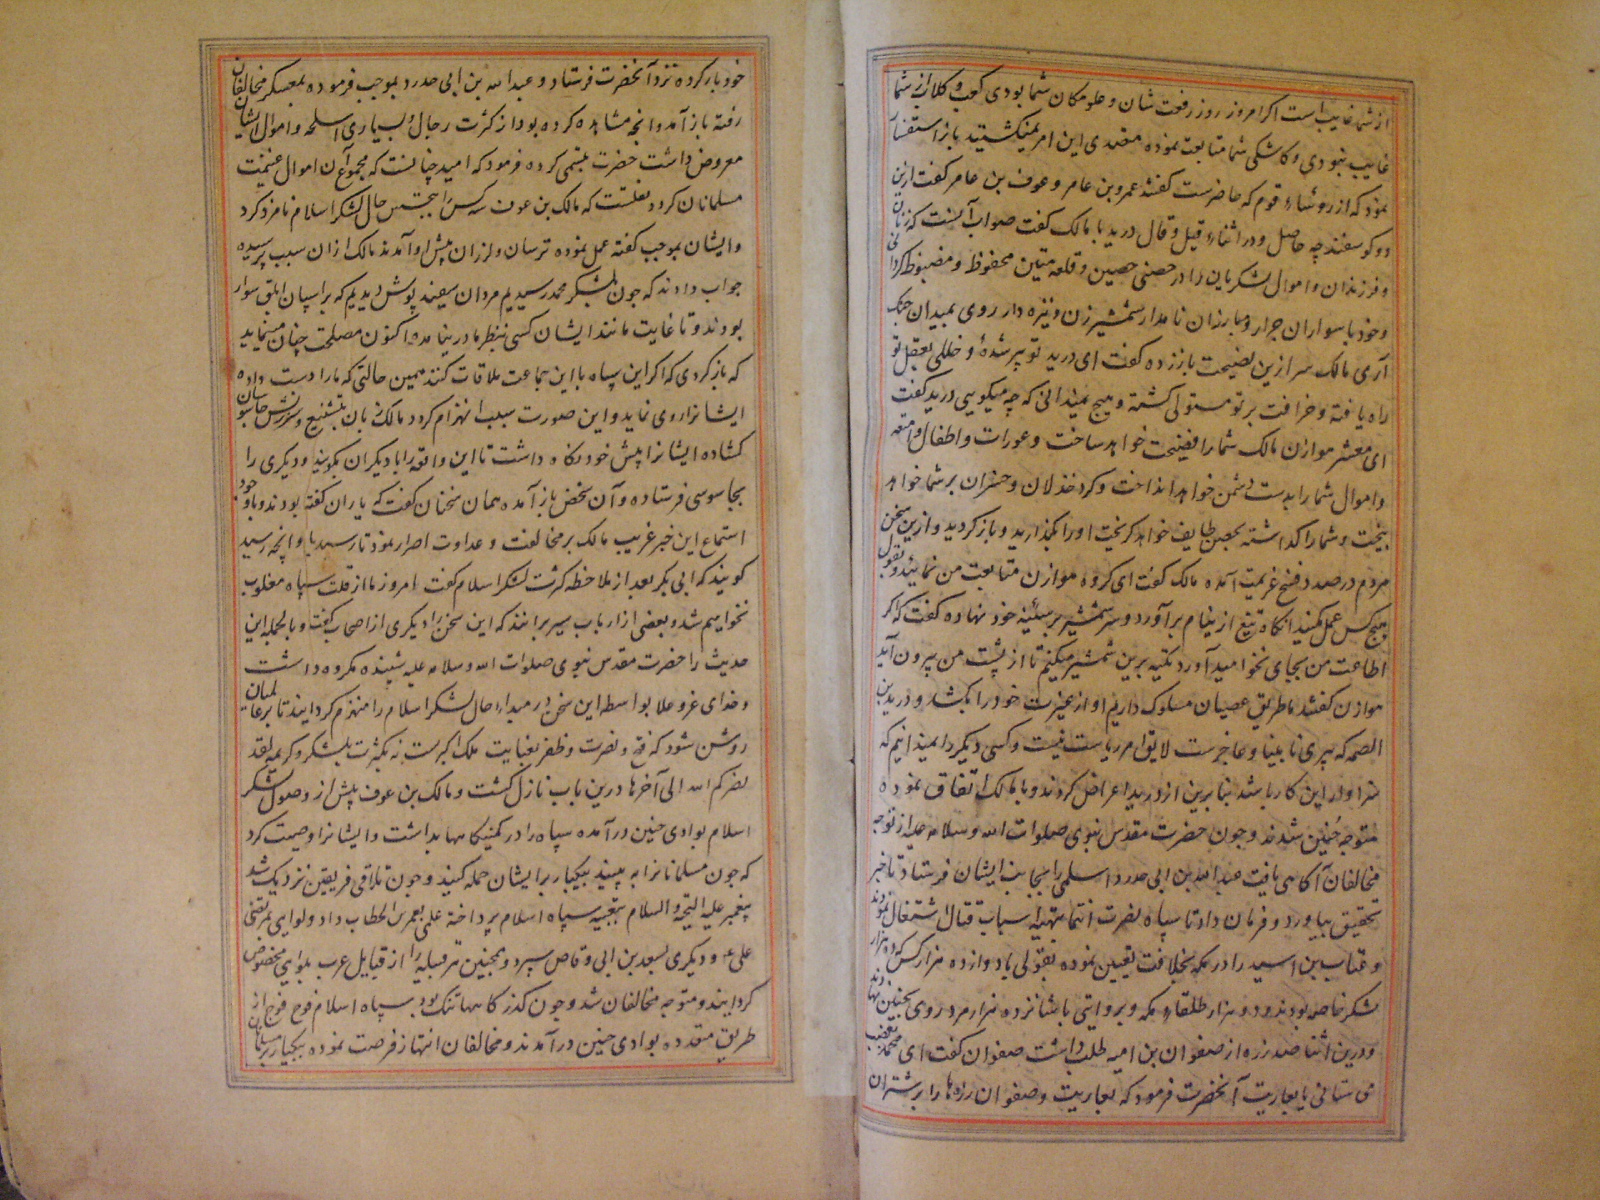 از شما غایب است اکر امروز روز رفعت شان و علو مکان شما بودی کعب و کلاب از شما
غایب نبودی و کاشکی شما متابعت نموده متصدی این امر نمیکشتید باز استفسار
نمود که از روساء قوم که حاضرست کفتند عمرو بن عامر و عوف بن عامر کفت ازین
دو کوسفند چه حاصل و در اثناء قیل و قال درید با مالک کفت صواب آنست که زنان
و فرزندان و اموال لشکریان را در حصنی حصین و قلعه متین محفوظ و مضبوط کردانی
و خود با سواران جرار و مبارزان نامدار شمشیر زن و نیزه دار روی بمیدان جنک
آری مالک سر ازین نصیحت باز زده کفت ای درید تو پیر شدۀ و خللی بعقل تو
راه یافته و خرافت بر تو مستولی کشته و هیچ نمیدانی که چه میکویی درید کفت
ای معشر هوازن مالک شما را فضیحت خواهد ساخت و عورات و اطفال و امتعه
و اموال شما را بدست دشمن خواهد انداخت و کرد خذلان و خسران بر شما خواهد
بیخت و شما را کذاشته بحصن طایف خواهد کریخت او را بکذارید و باز کردید و ازین سخن
مردم در صدد فسخ عزیمت آمده مالک کفت ای کروه هوازن متابعت من نمائید و بقول
هیچ کس عمل مکنید انکاه تیغ از نیام برآورد و سر شمشیر بر سینۀ خود نهاده کفت که اکر
اطاعت من بجای نخواهید آورد تکیه برین شمشیر میکنم تا از پشت من بیرون آید
هوازن کفتند ما طریق عصیان مسلوک داریم او از غیرت خود را بکشد و درید بن
الصمه که پیری نابینا و عاجزست لایق امر ریاست نیست و کسی دیکر را نمیدانیم که
سزاوار این کار باشد بنابرین از درید اعراض کردند و با مالک اتفاق نموده
متوجه حنین شدند و چون حضرت مقدس نبوی صلوات الله و سلامه علیه از توجه
مخالفان آکاهی یافت عبد الله بن ابی حدرد اسلمی را بجانب ایشان فرستاد تا خبر
تحقیق بیاورد و فرمان داد تا سپاه نصرت انتما بتهیه اسباب قتال اشتغال نمودند
و عتاب بن اسید را در مکه بخلافت تعیین نموده بقولی با دوازده هزار کس که ده هزار
لشکر خاصه بودند و دو هزار طلقاء مکه و بروایتی با شانزده هزار مرد روی بحنین نهادند
و درین اثنا صد زره از صفوان بن امیه طلب داشت صفوان کفت ای محمد بغصب
می ستانی یا بعاریت آنحضرت فرمود که بعاریت و صفوان زره ها را بر شتران
خود بار کرده نزد آنحضرت فرستاد و عبد الله بن ابی حدرد بموجب فرموده بمعسکر مخالفان
رفته باز آمد و انچه مشاهده کرده بود از کثرت رجال و بسیاری اسلحه و اموال ایشان
معروض داشت حضرت تبسمی کرده فرمود که امید چنانست که مجموع آن اموال غنیمت
مسلمانان کردد نقلست که مالک بن عوف سه کس را بتجسس حال لشکر اسلام نامزد کرد
و ایشان بموجب کفته عمل نموده ترسان و لرزان پیش او آمدند مالک از ان سبب پرسیده
جواب دادند که چون بلشکر محمد رسیدیم مردان سفید پوش دیدیم که بر اسپان ابلق سوار
بودند و تا غایت مانند ایشان کسی بنظر ما در نیامده اکنون مصلحت چنان مینماید
که باز کردی که اکر این سپاه با این جماعت ملاقات کنند همین حالتی که ما را دست داده
ایشانرا روی نماید و این صورت سبب انهزام کردد مالک زبان بتشنیع و سرزنش جاسوسان
کشاده ایشانرا پیش خود نکاه داشت تا این واقعه را با دیکران نکویند و دیکری را
بجاسوسی فرستاده و آن شخص باز آمده همان سخنان کفت که یاران کفته بودند و با وجود
استماع این خبر غریب مالک بر مخالفت و عداوت اصرار نمود تا رسید باو انچه رسید
کویند که ابی بکر بعد از ملاحظه کثرت لشکر اسلام کفت امروز ما از قلت سپاه مغلوب
نخواهیم شد و بعضی از ارباب سیر برانند که این سخن را دیکری از اصحاب کفت و بالجمله این
حدیث را حضرت مقدس نبوی صلوات الله و سلامه علیه شنیده مکروه داشت
و خدای عز و علا بواسطه این سخن در مبداء حال لشکر اسلام را منهزم کردانید تا بر عالمیان
روشن شود که فتح و نصرت و ظفر بعنایت ملک اکبرست نه بکثرت لشکر و کریمه لقد
نصرکم الله الی آخرها درین باب نازل کشت و مالک بن عوف پیش از وصول لشکر
اسلام بوادی حنین در آمده سپاه را در کمینکاهها بداشت و ایشانرا وصیت کرد
که چون مسلمانانرا به بینید بیکبار بر ایشان حمله کنید و چون تلاقی فریقین نزدیک شد
پیغمبر علیه التحیة و السلام بتعبیه سپاه اسلام پرداخته علمی بعمر بن الخطاب داد و لوای بمرتضی
علی ع و دیکری بسعد بن ابی وقاص سپرد و همچنین هر قبیله را از قبایل عرب بلوایی مخصوص
کردانیدند و متوجه مخالفان شد و چون کذرکاهها تنک بود سپاه اسلام فوج فوج از
طریق متعدده بوادی حنین در آمدند و مخالفان انتهاز فرصت نموده بیکبار بر مسلمانان